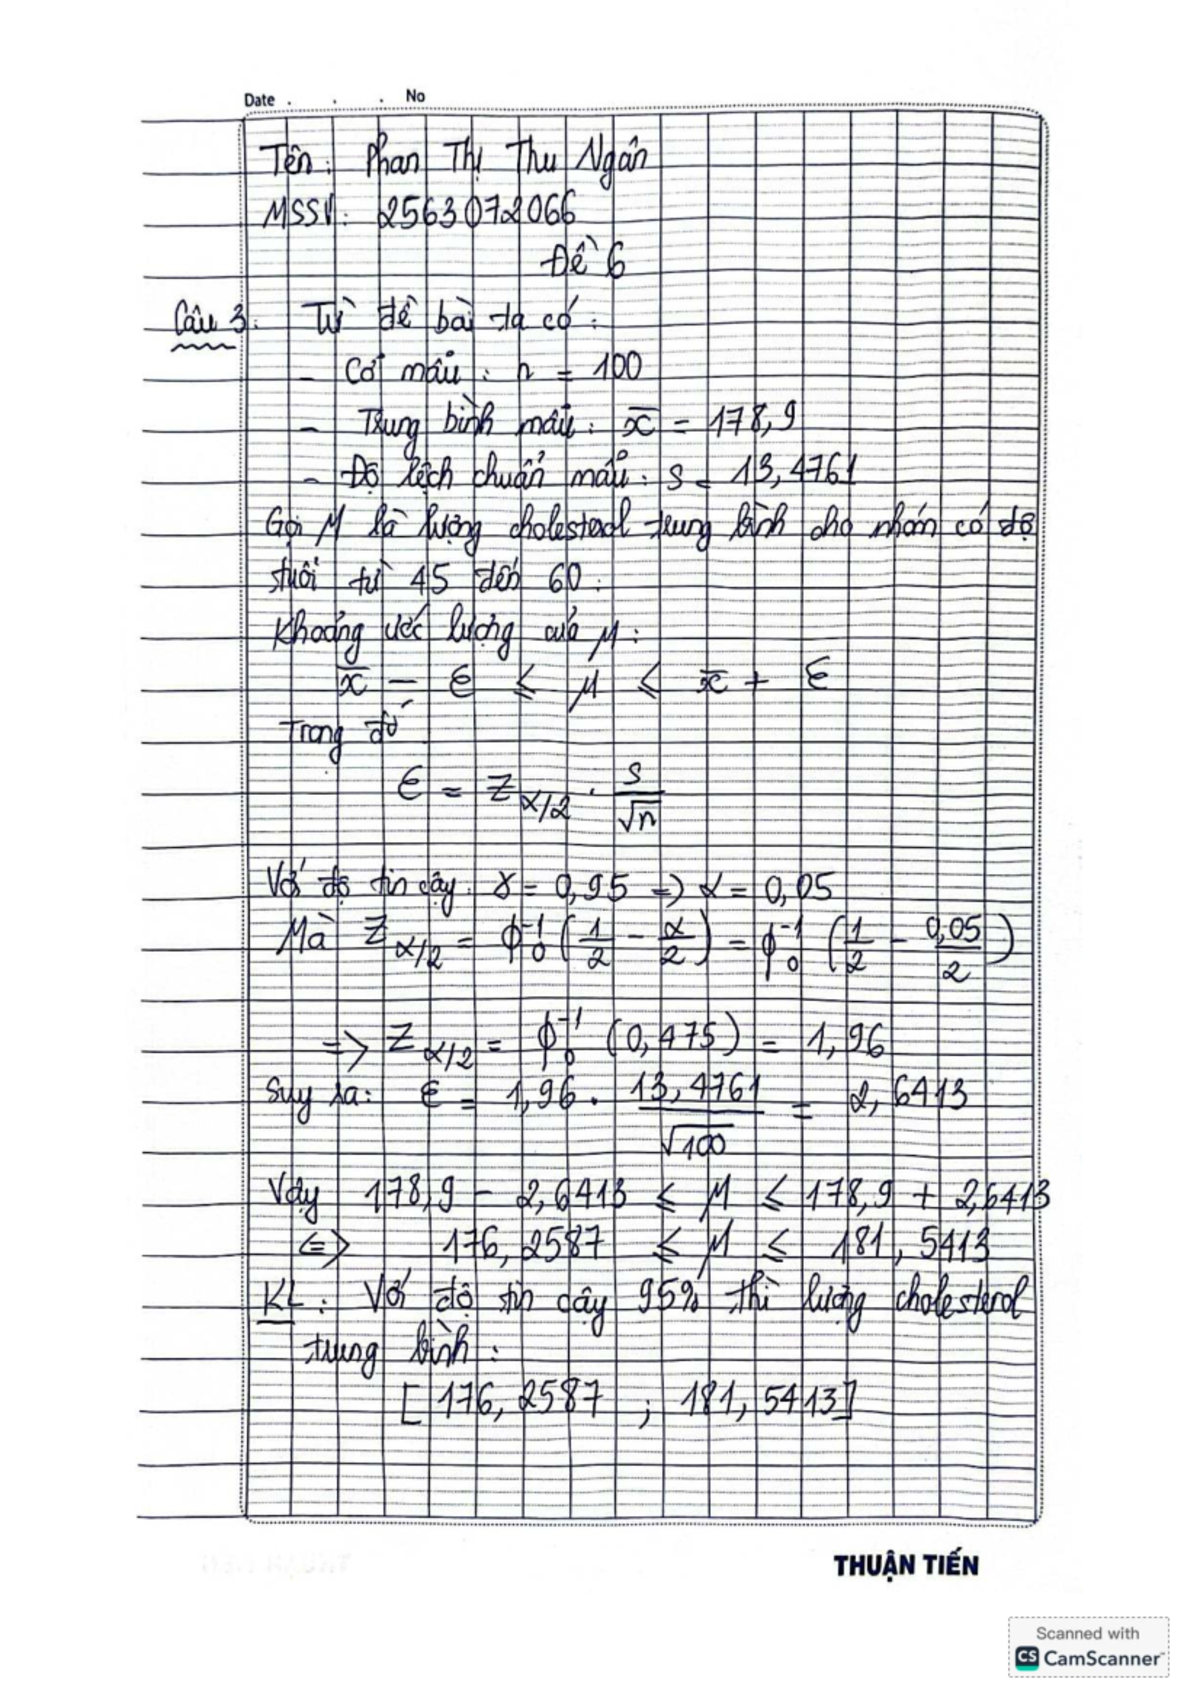 Date . . . No
Tên: Phan Thị Thu Ngân
MSSV: 2563072066
Đề 6
Câu 3: Từ đề bài ta có:
- Cỡ mẫu: n = 100
- Trung bình mẫu: x̄ = 178,9
- Độ lệch chuẩn mẫu: s = 13,4761
Gọi M là lượng cholesterol trung bình cho nhóm có độ
tuổi từ 45 đến 60.
Khoảng ước lượng của μ:
x̄ - ε ≤ μ ≤ x̄ + ε
Trong đó
ε = Z α/2 . s/√n
Với độ tin cậy γ = 0,95 => α = 0,05
Mà Z α/2 = ϕ₀⁻¹ (1/2 - α/2) = ϕ₀⁻¹ (1/2 - 0,05/2)
=> Z α/2 = ϕ₀⁻¹ (0,475) = 1,96
Suy ra: ε = 1,96 . 13,4761/√100 = 2,6413
Vậy 178,9 - 2,6413 ≤ μ ≤ 178,9 + 2,6413
<=> 176,2587 ≤ μ ≤ 181,5413
KL: Với độ tin cậy 95% thì lượng cholesterol
trung bình:
[176,2587 ; 181,5413]
THUẬN TIẾN
Scanned with
CS CamScanner